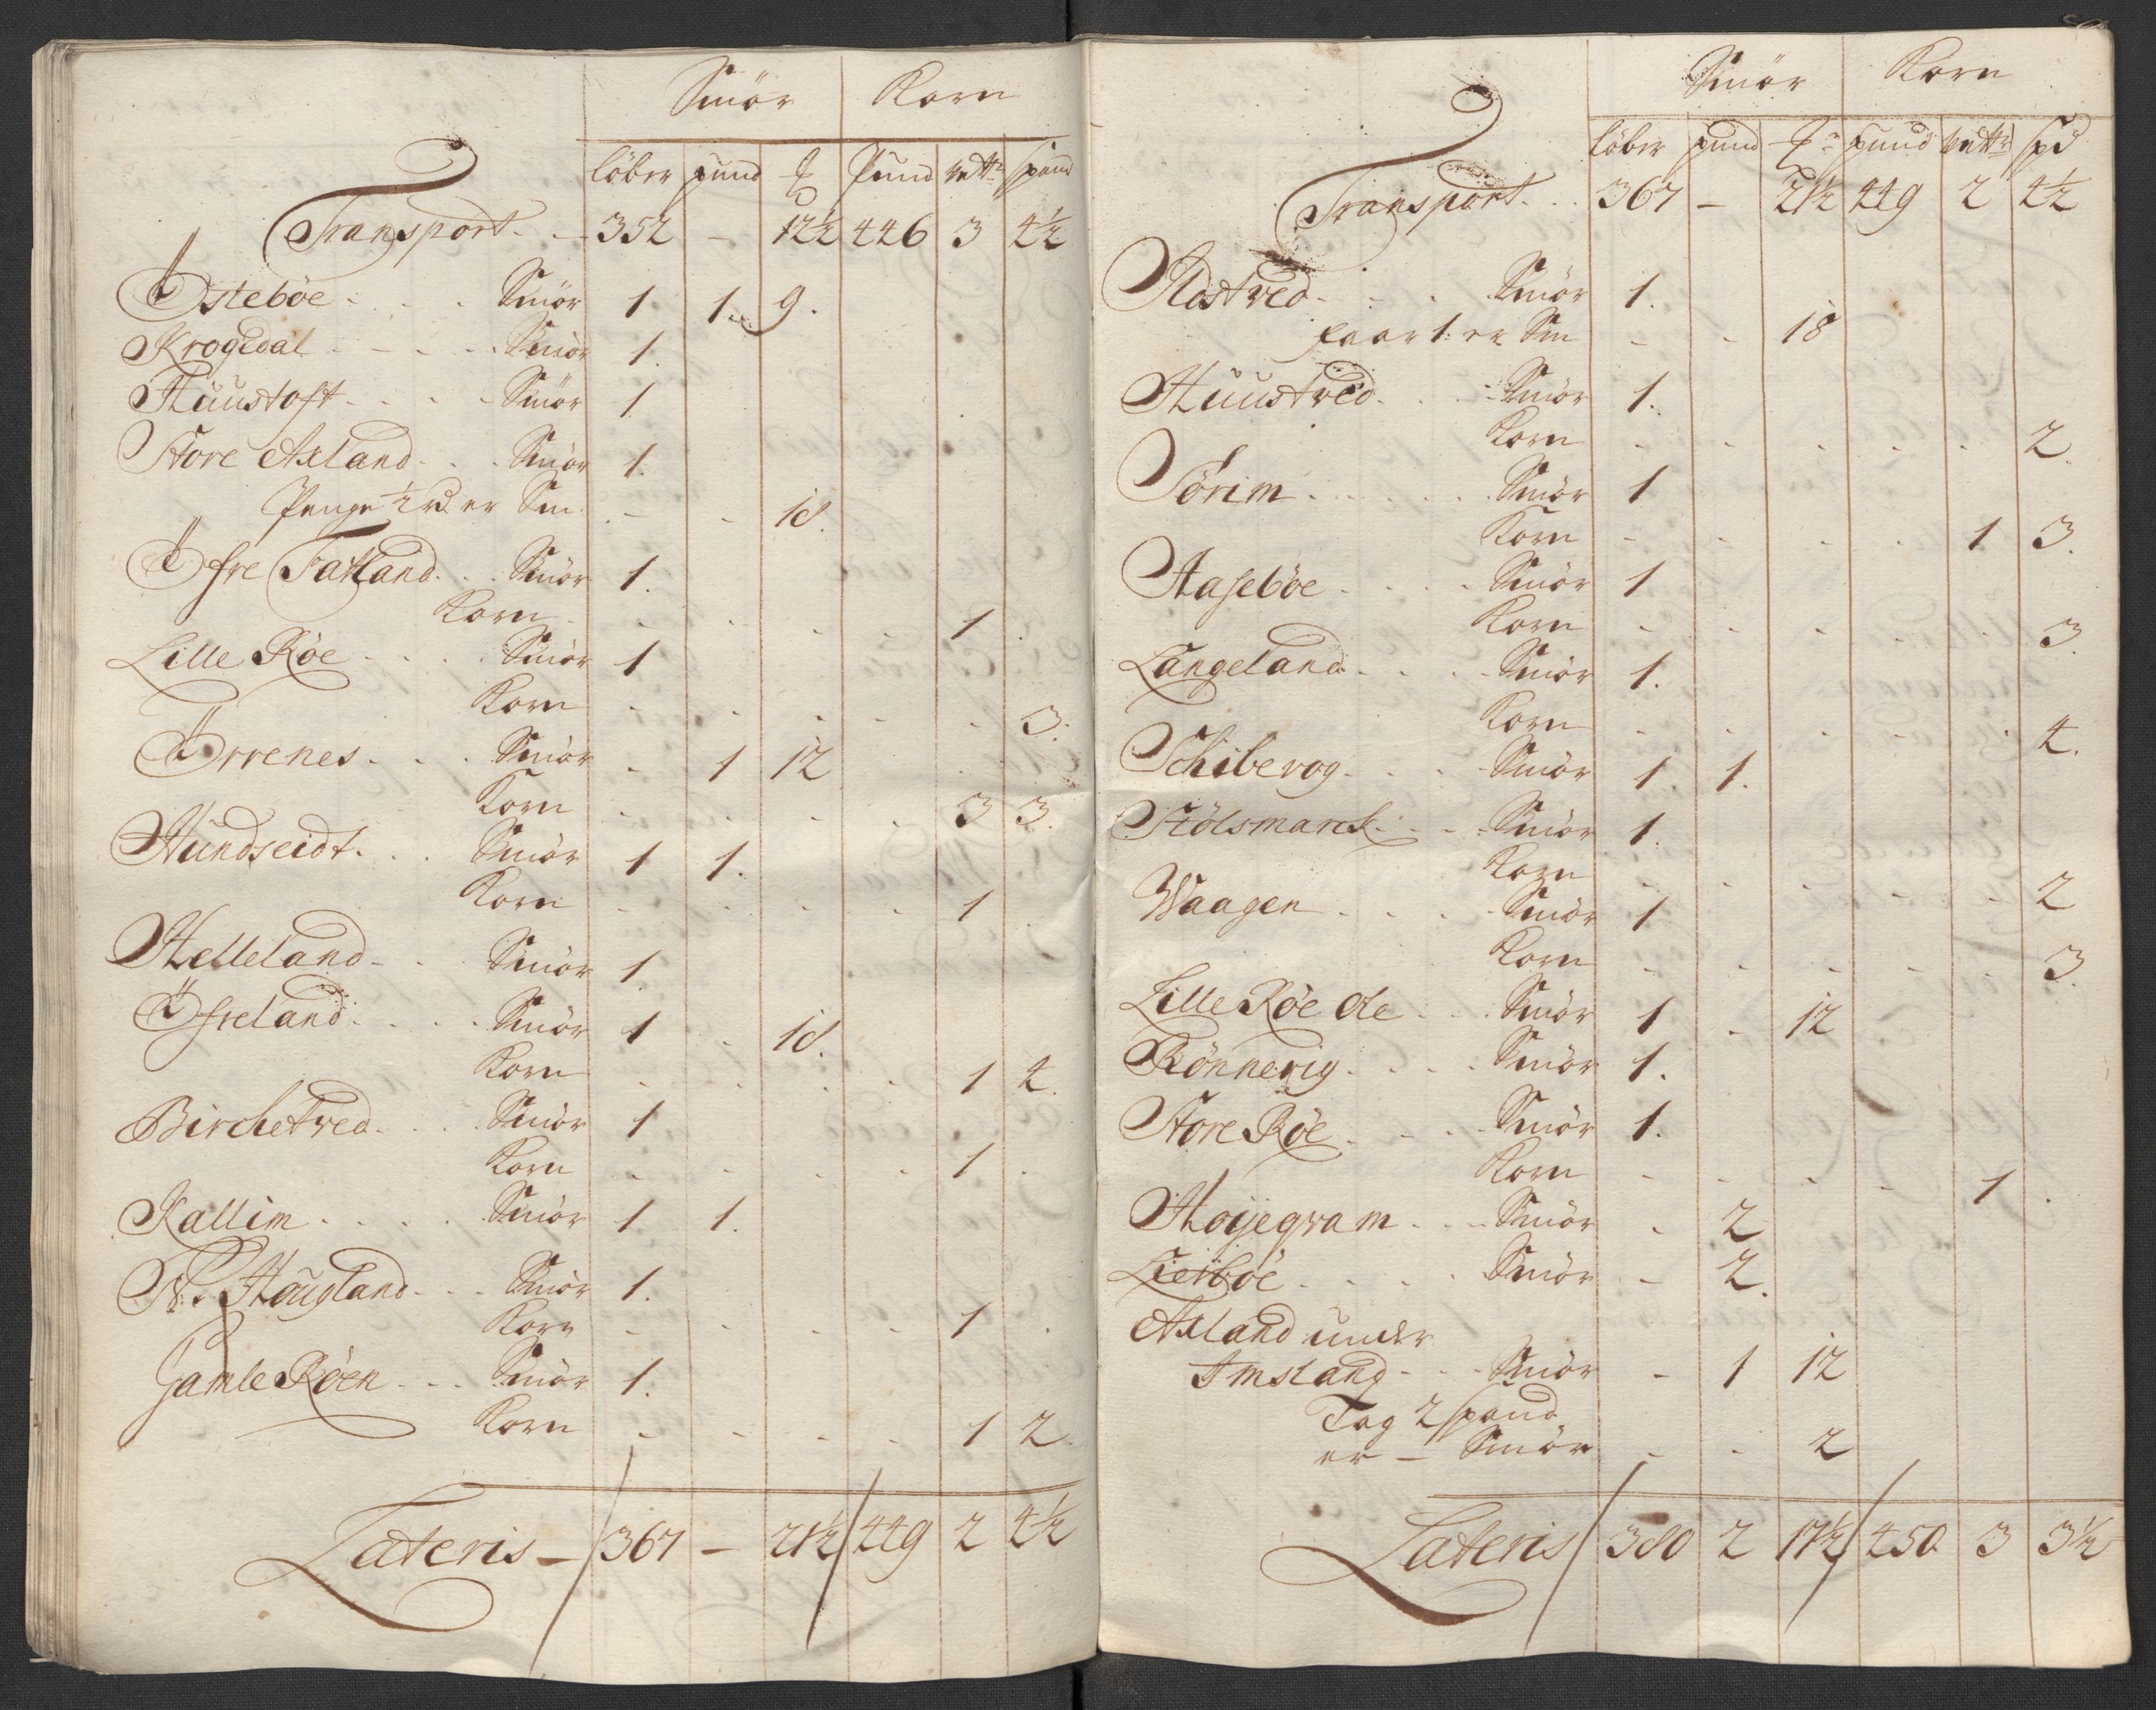 Smör Korn
löber pund ℔ Pund vett: spand
Transport - 352 - 12½ 446 3 4½
Östebøe - Smör 1 1 9.
Krogedal - Smör 1.
Huustoft - Smör 1
Store Axland - Smör 1.
Penge ½ rd er Sm: - - 18.
Öfre Tatland - Smör 1.
Korn - - - - 1 .
Lille Røe - Smör 1
Korn - - - - - 3.
Örrenes - Smör - 1 12
Korn - - - - 3 3.
Hundseidt - Smör 1 1.
Korn - - - - 1 .
Helleland - Smör 1.
Öfreland - Smör 1 - 18.
Korn - - - - 1 4.
Birchetved - Smör 1
Korn - - - - 1 .
Kallim - Smör 1 1.
N: Hougland - Smör 1.
Korn - - - - 1 .
Gamle Røen - Smör 1.
Korn - - - - 1 2.
Lateris - 367 - 21½ 449 2 4½
Smör Korn
löber pund ℔ pund vett: spd
Transport - 367 - 21½ 449 2 4½
Smör 1.
faar 1: er Sm - - 18
Huustved - Smör 1.
Korn - - - - - 2.
Sörim - Smör 1
Korn - - - - 1 3.
Aasebøe - Smör 1
Korn - - - - - 3.
Langeland - Smör 1.
Korn - - - - - 4.
Schibevog - Smör 1 1.
Stölsmarck - Smör 1.
Korn - - - - - 2
Waagen - Smör 1
Korn - - - - - 3.
Lille Røe Ole - Smör 1 - 12
Rönnevig - Smör 1.
Store Røe - Smör 1.
Korn - - - - 1 .
Høyeqvam - Smör - 2
Smör - 2.
Axland under
Imsland - Smör - 1 12
Tag 2 spand
er - Smör - - 2
Lateris 380 2 17½ 450 3 3½